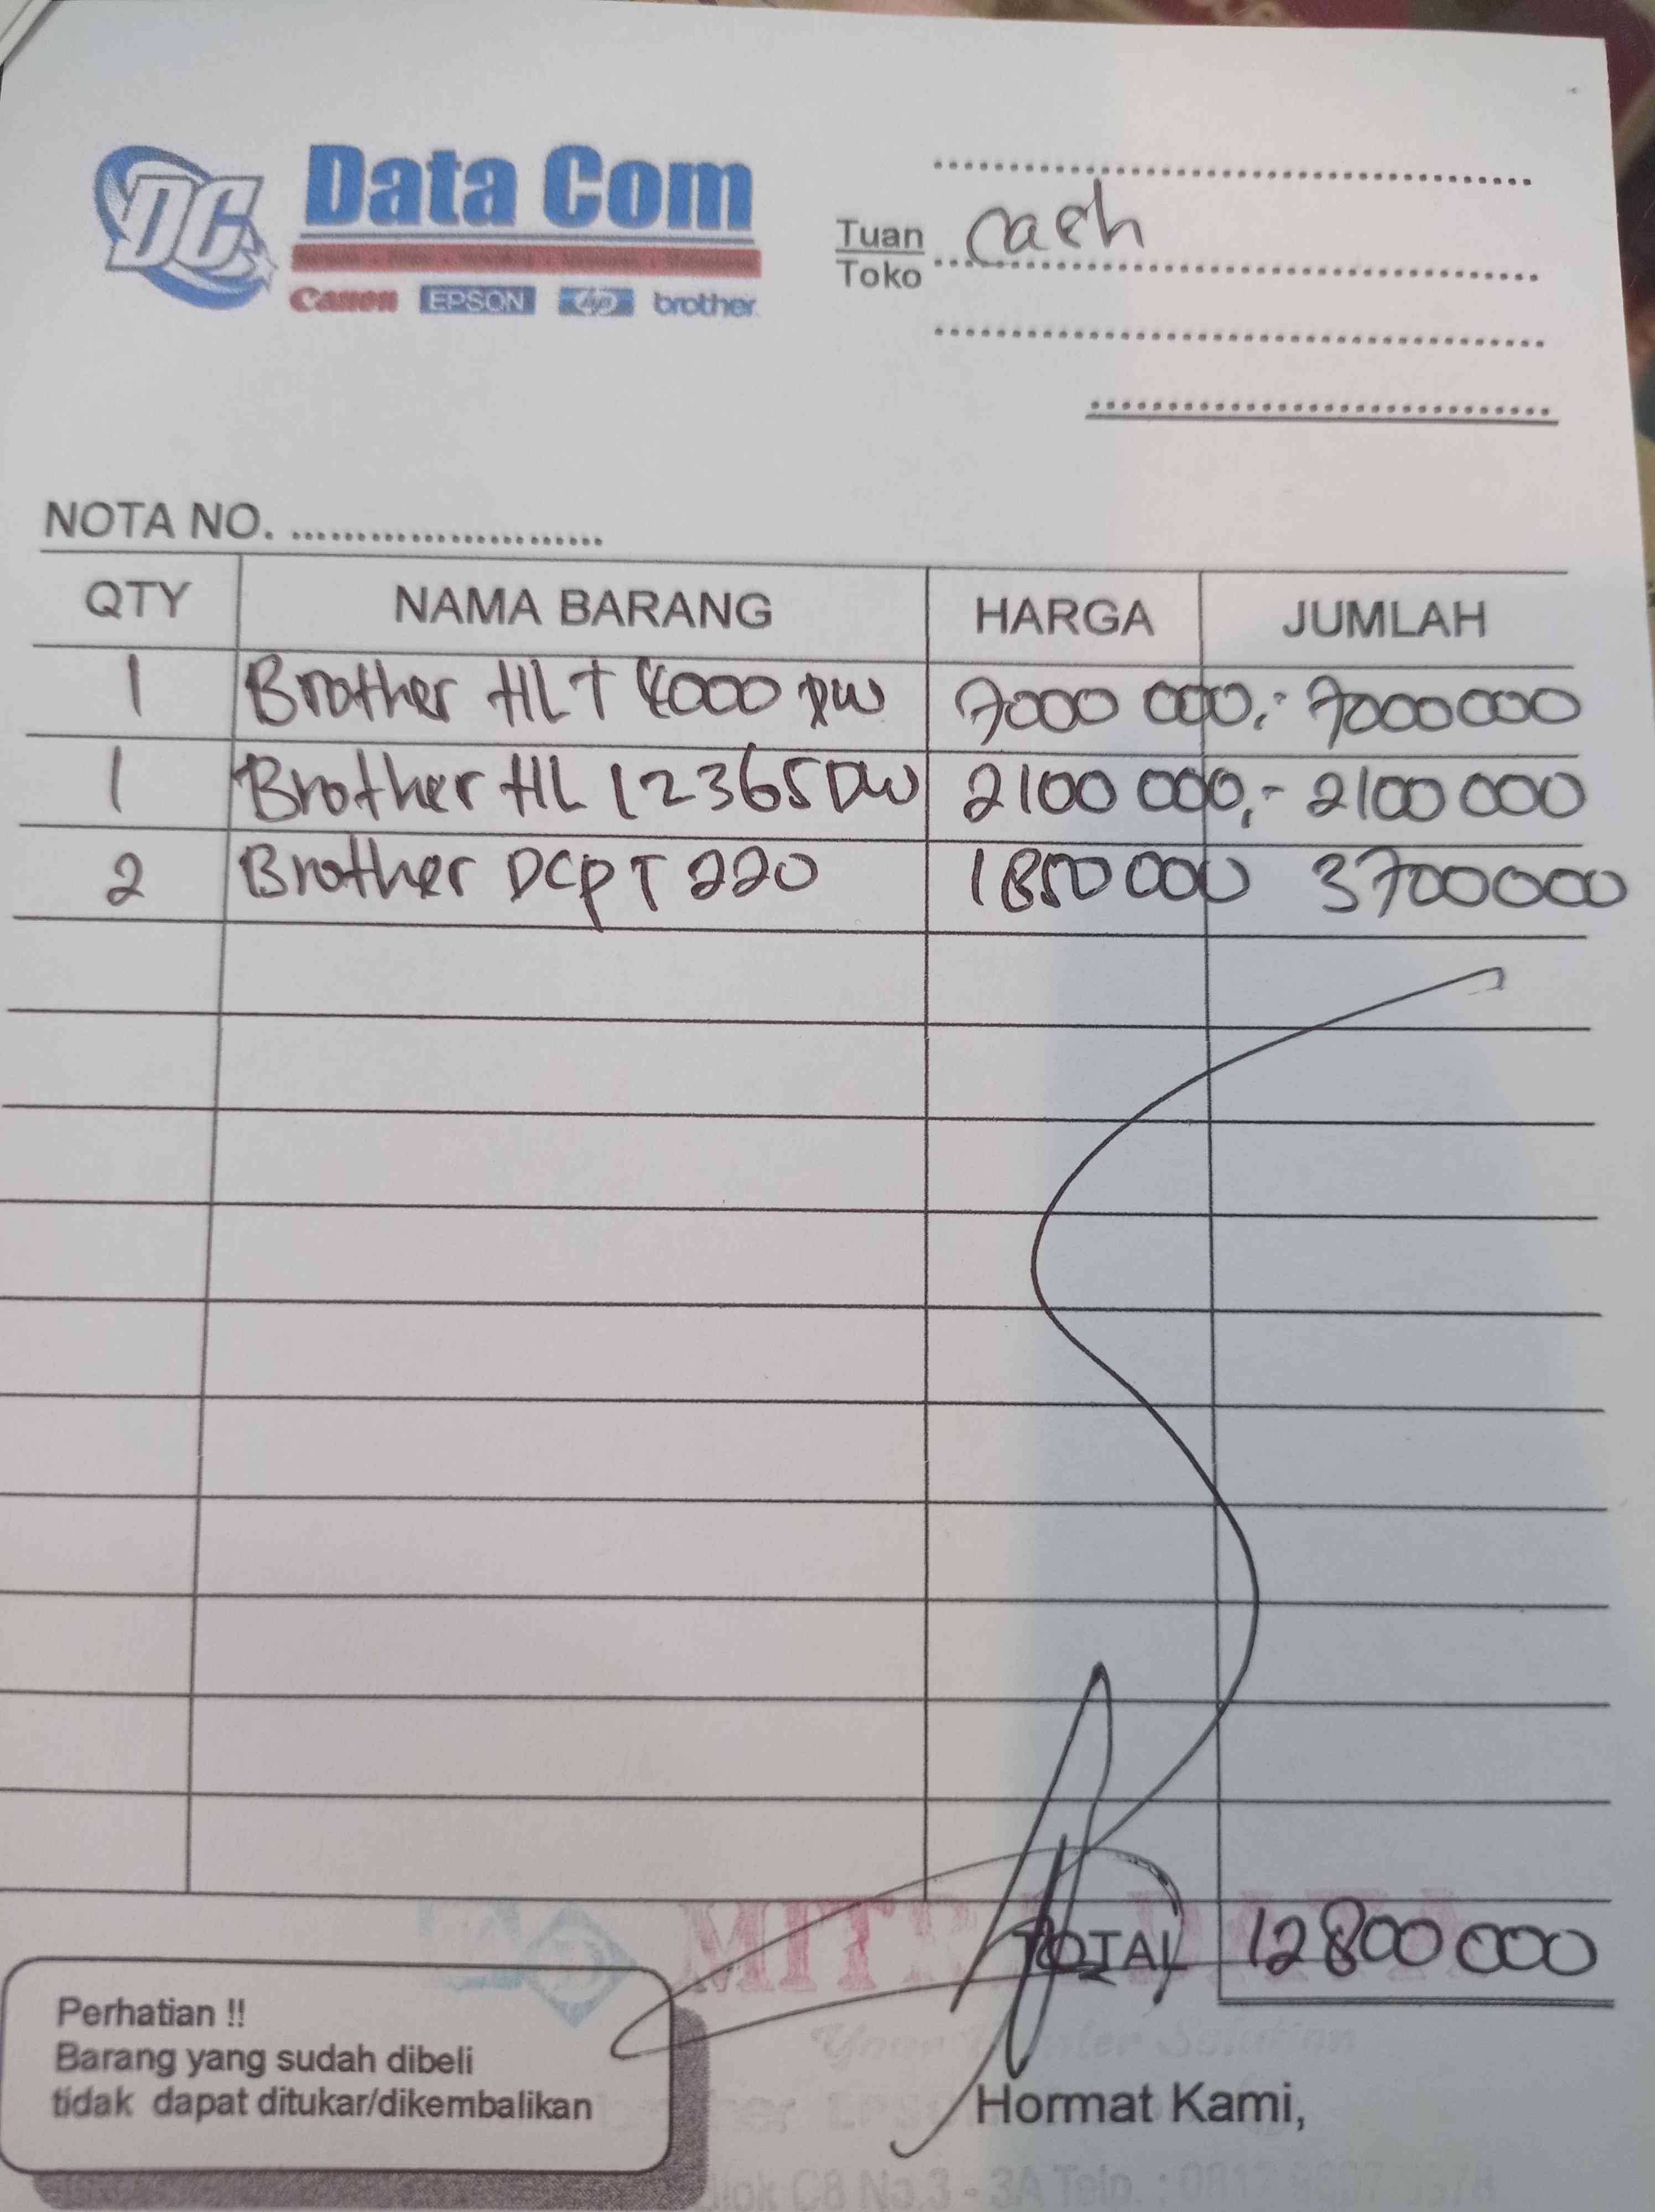 DC Data Com
Canon EPSON hp brother
Tuan Cash
Toko
NOTA NO.
QTY NAMA BARANG HARGA JUMLAH
1 Brother HL T 4000 DW 7000 000,- 7000000
1 Brother HL L2365DW 2100 000,- 2100 000
2 Brother DCP T 220 1850 000 3700000
TOTAL 12800 000
MITRA DATA
Your Printer Solution
Perhatian !!
Barang yang sudah dibeli
tidak dapat ditukar/dikembalikan
Hormat Kami,
Blok C8 No.3 - 3A Telp. : 0812